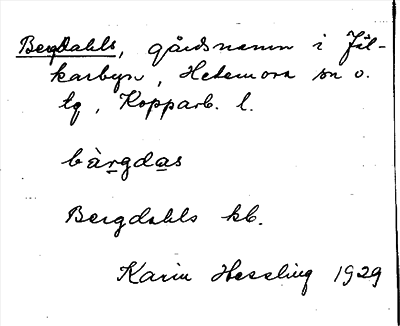 Bergdahls, gårdsnamn i Jäl-
karbyn, Hedemora sn o.
lg, Kopparb. l.
bàrgdas
Bergdahls kb.
Karin Hessling 1929